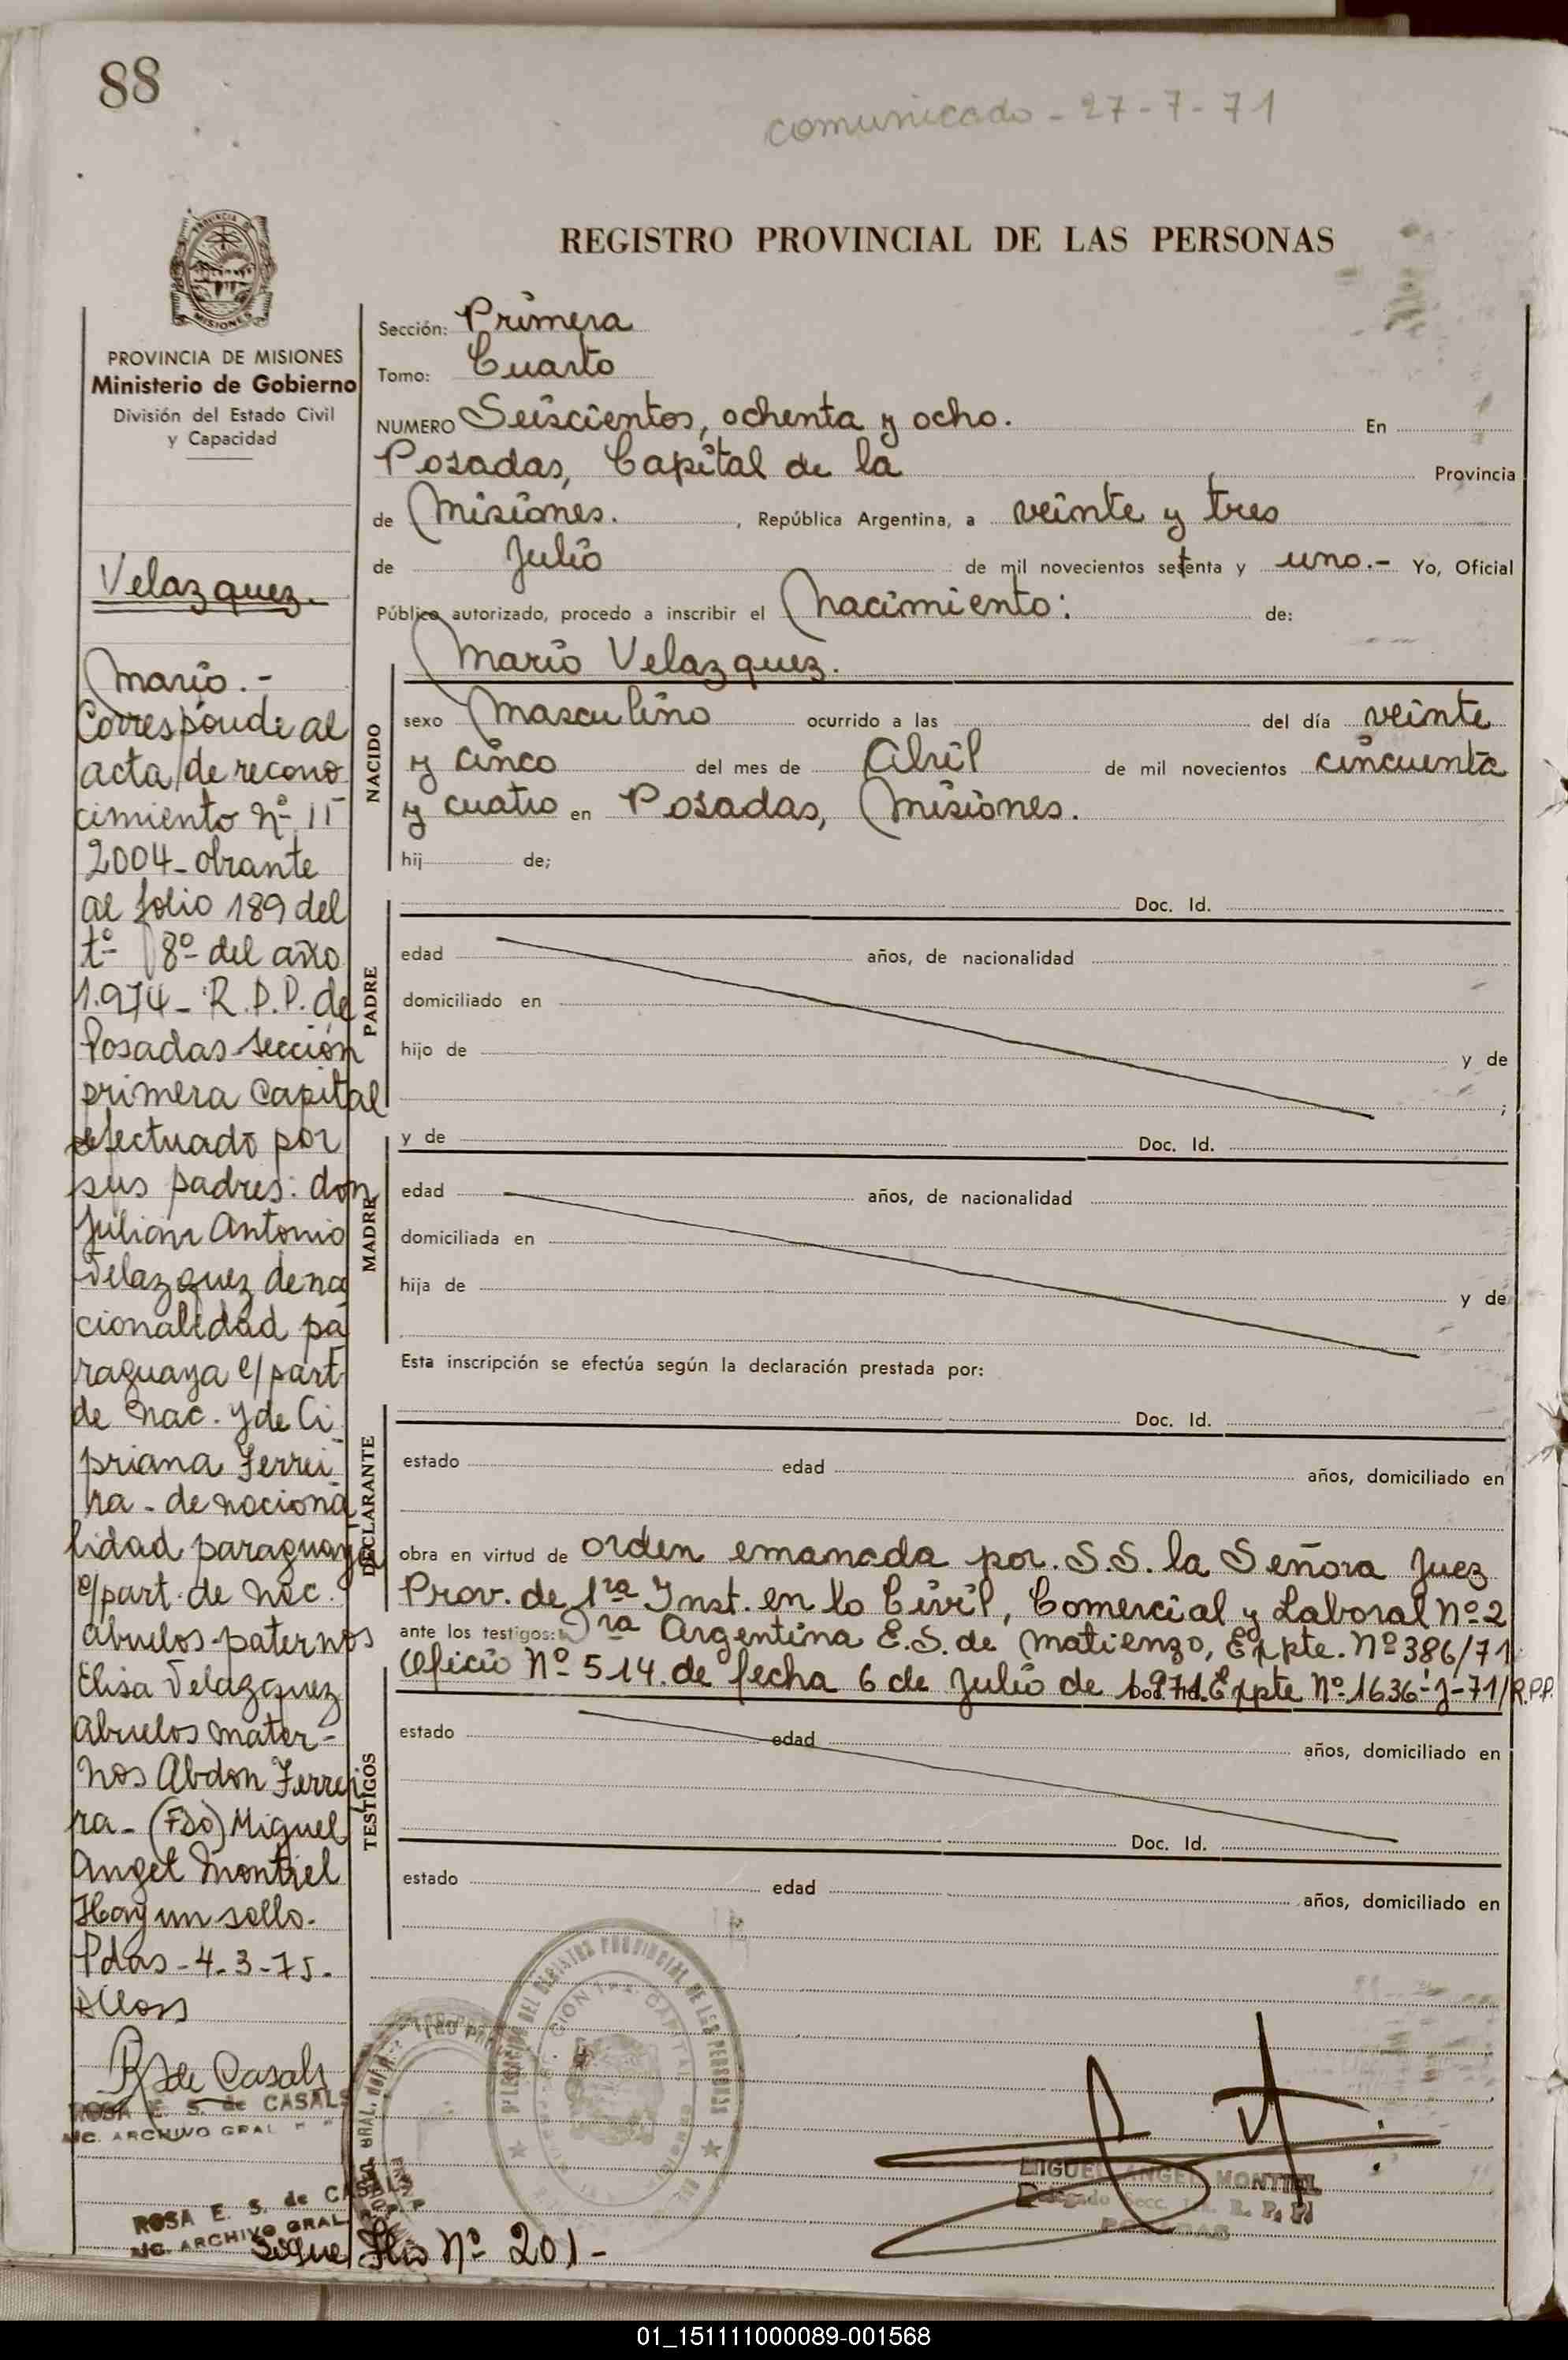 88
comunicado - 27-7-71
REGISTRO PROVINCIAL DE LAS PERSONAS
PROVINCIA DE
MISIONES
PROVINCIA DE MISIONES
Ministerio de Gobierno
División del Estado Civil
y Capacidad
Velazquez.
Mario.-
Corresponde al
acta de recono
cimiento Nº 11
2004 - obrante
al folio 189 del
tº 8º del año
1.974 - R.P.P. de
Posadas sección
primera Capital
efectuado por
sus padres: don
Julian Antonio
Velazquez de na
cionalidad pa
raguaya c/part
de nac. y de Ci
priana Ferrei
ra - de naciona
lidad paraguaya
c/part. de nac.
abuelos paternos
Elisa Velazquez
abuelos mater-
nos Abdon Ferrei
ra - (Fdo) Miguel
Angel Montiel
Hay un sello.
Pdas - 4-3-75.
R de Casals
ROSA E. S. de CASALS
ARCHIVO GRAL
ROSA E. S. de CASALS
ARCHIVO GRAL
Sigue Flio Nº 201-
Sección: Primera
Tomo: Cuarto
NUMERO Seiscientos, ochenta y ocho. En
Posadas, Capital de la Provincia
de Misiones. , República Argentina, a veinte y tres
de Julio de mil novecientos setenta y uno.- Yo, Oficial
Público autorizado, procedo a inscribir el Nacimiento: de:
Mario Velazquez.
NACIDO
sexo Masculino ocurrido a las del día veinte
y cinco del mes de Abril de mil novecientos cincuenta
y cuatro en Posadas, Misiones.
hij de;
PADRE
Doc. Id.
edad años, de nacionalidad
domiciliado en
hijo de y de
;
MADRE
y de Doc. Id.
edad años, de nacionalidad
domiciliada en
hija de y de
Esta inscripción se efectúa según la declaración prestada por:
DECLARANTE
Doc. Id.
estado edad años, domiciliado en
obra en virtud de orden emanada por. S.S. la Señora Juez
Prov. de 1ra Inst. en lo Civil, Comercial y Laboral Nº 2
ante los testigos: Dra Argentina E.S. de Matienzo, Expte. Nº 386/71
Oficio Nº 514. de fecha 6 de Julio de 1.971. Expte Nº 1636-J-71/R.P.P.
TESTIGOS
estado edad años, domiciliado en
Doc. Id.
estado edad años, domiciliado en
DEL REGISTRO PROVINCIAL DE LAS PERSONAS
CAPITAL
MIGUEL ANGEL MONTIEL
Delegado Secc. 1ra. R. P. P.
POSADAS
01_151111000089-001568